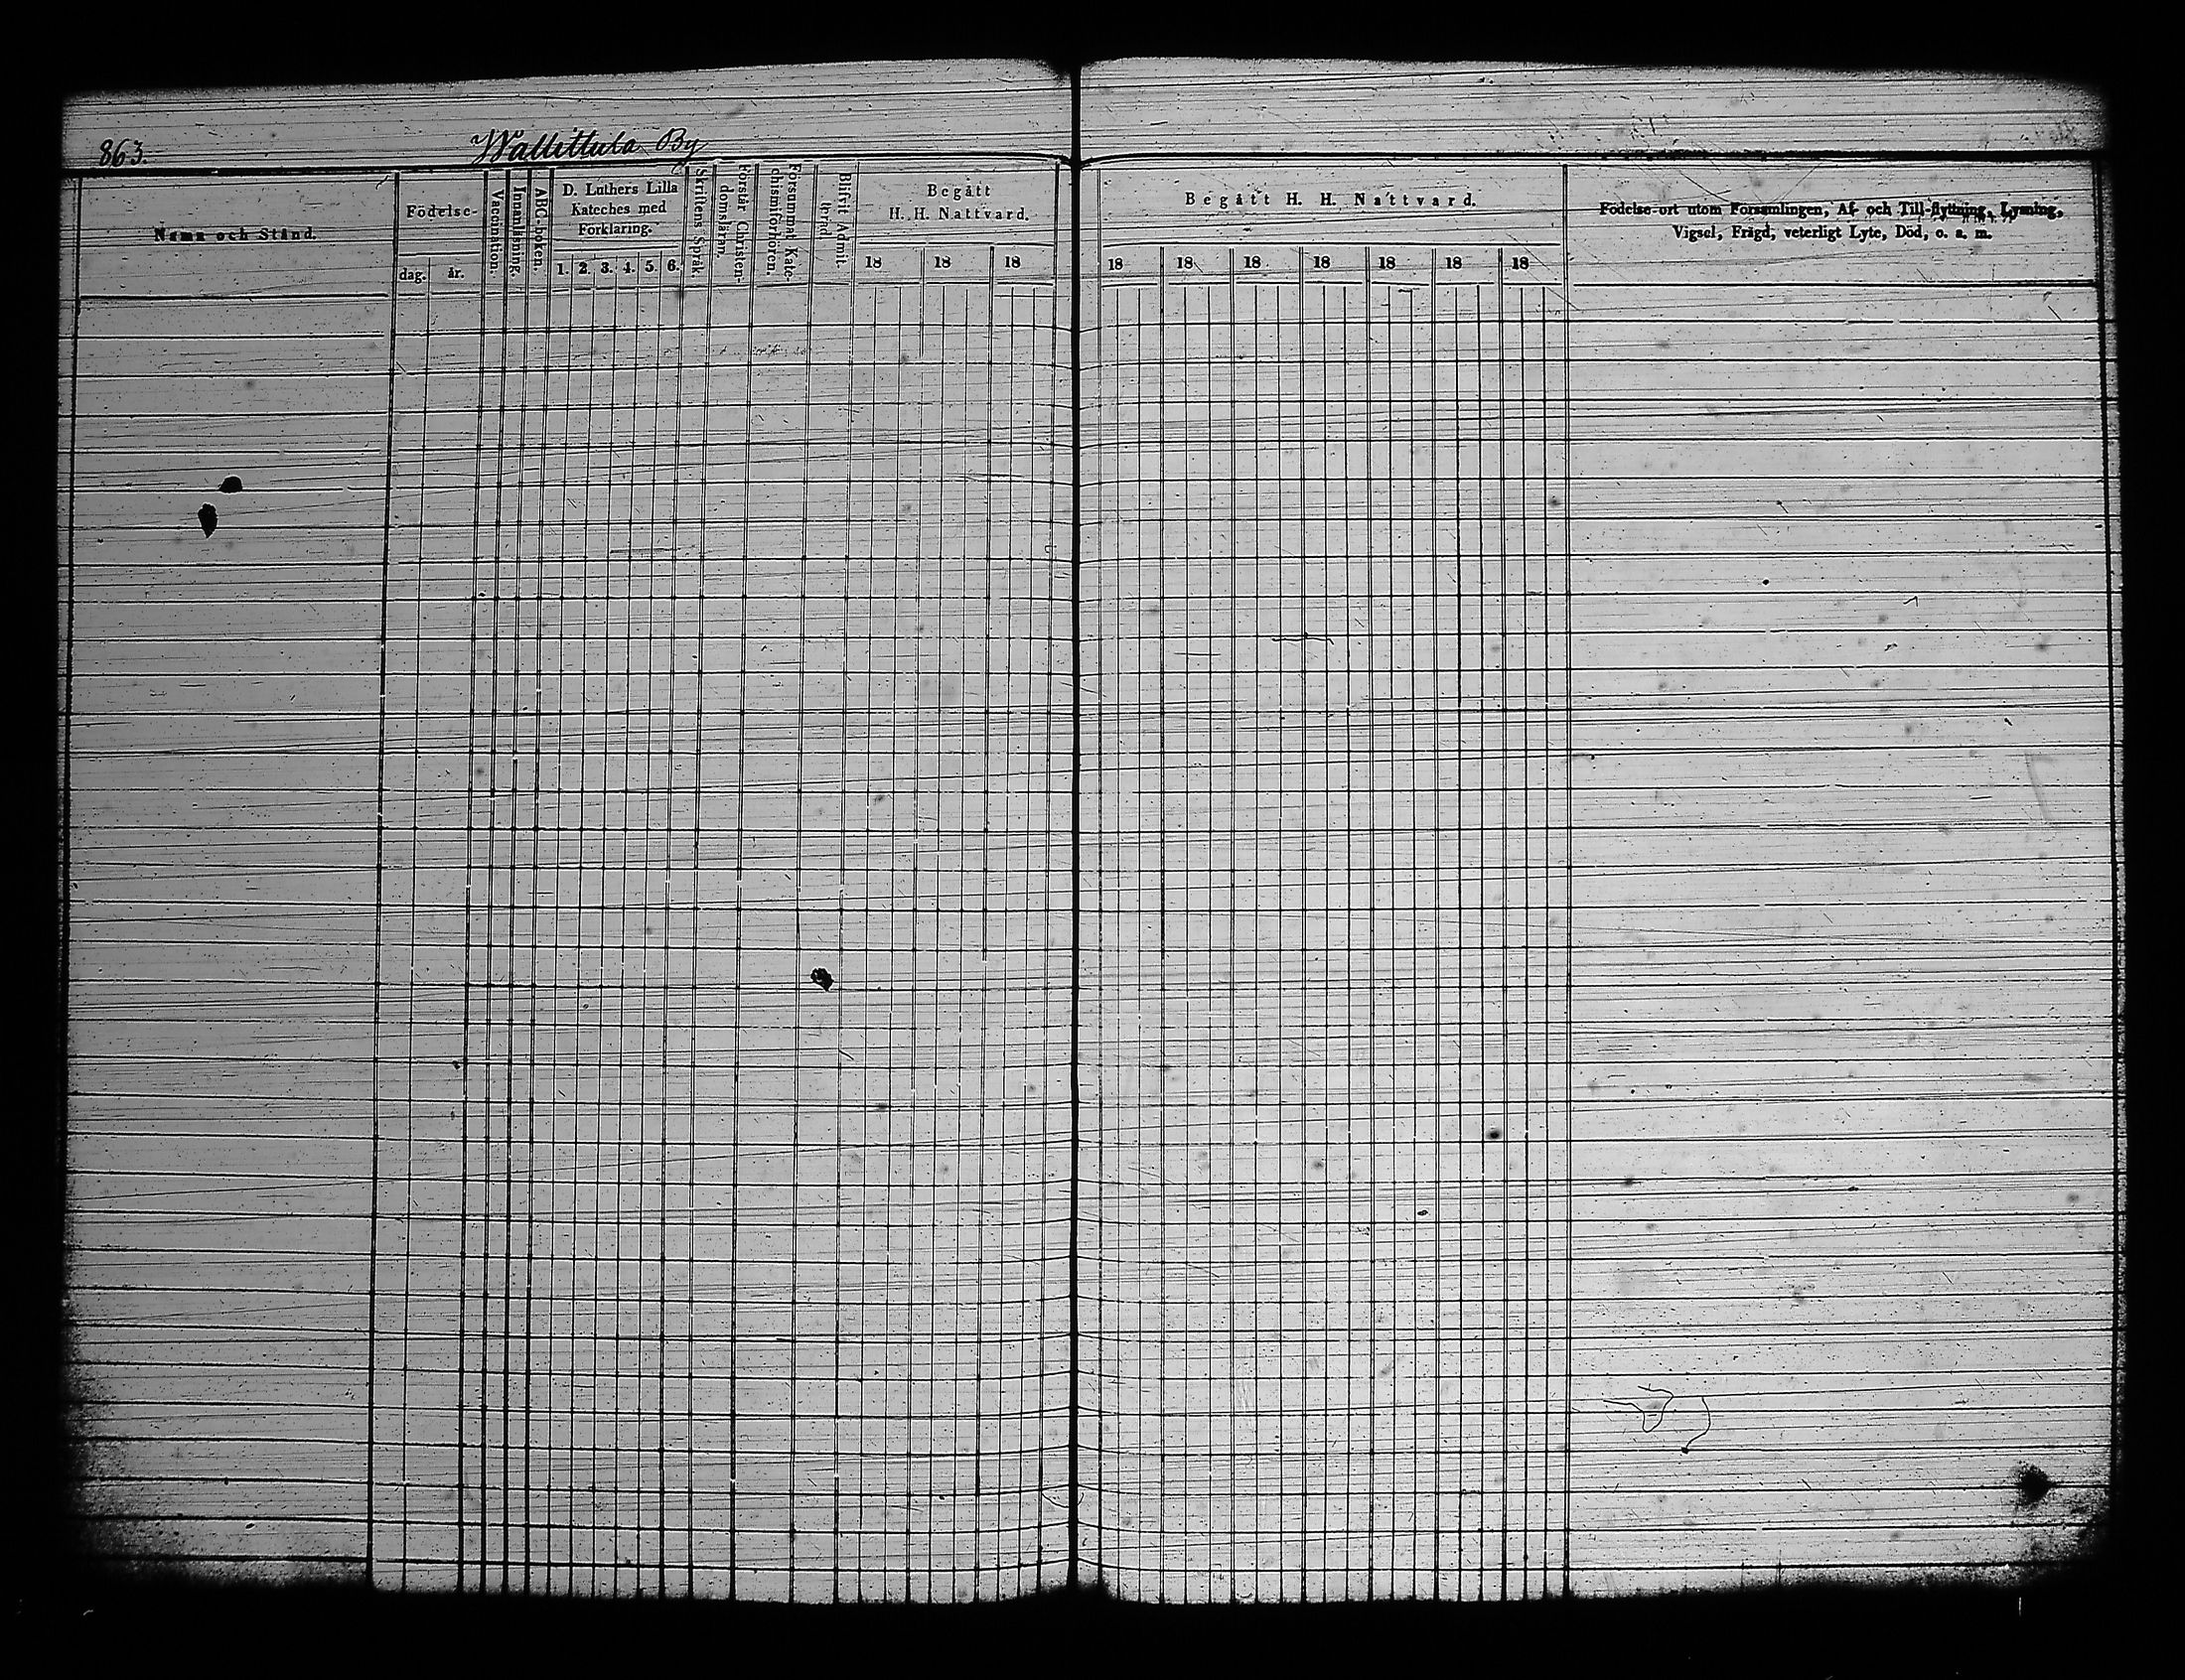 863.
Wallittula By
Namn och Stånd.
Födelse-
dag.
år.
Vaccination.
Innanläsning.
ABC-boken.
D. Luthers Lilla
Kateches med
Förklaring.
1. 2. 3. 4. 5. 6.
Skriftens Språk.
Förstår Christen-
domsläran.
Försummat Kate-
chismiförhören.
Blifvit Admit-
terad.
Begått
H. H. Nattvard.
18 18 18
Begått H. H. Nattvard.
18 18 18 18 18 18 18
Födelse-ort utom Församlingen, Af- och Till-flyttning, Lysning,
Vigsel, Frägd, veterligt Lyte, Död, o. s. m.